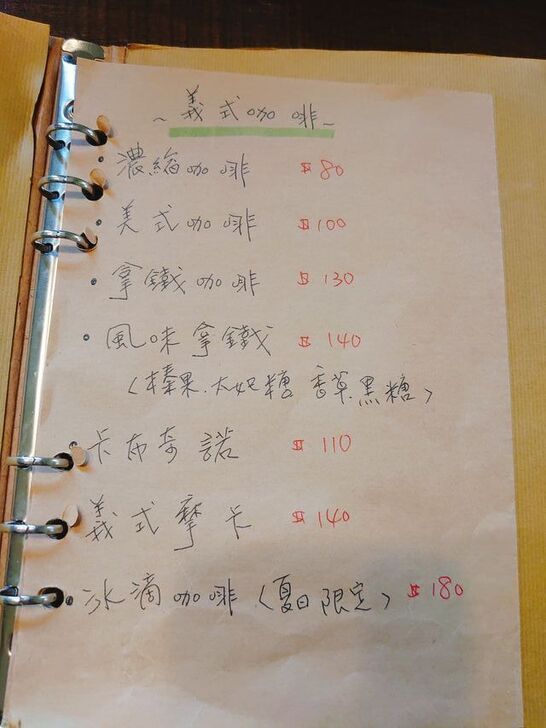 ~義式咖啡~
•濃縮咖啡 $80
•美式咖啡 $100
•拿鐵咖啡 $130
•風味拿鐵 $140
(榛果.太妃糖 香草黑糖)
•卡布奇諾 $110
•義式摩卡 $140
•冰滴咖啡(夏日限定) $180